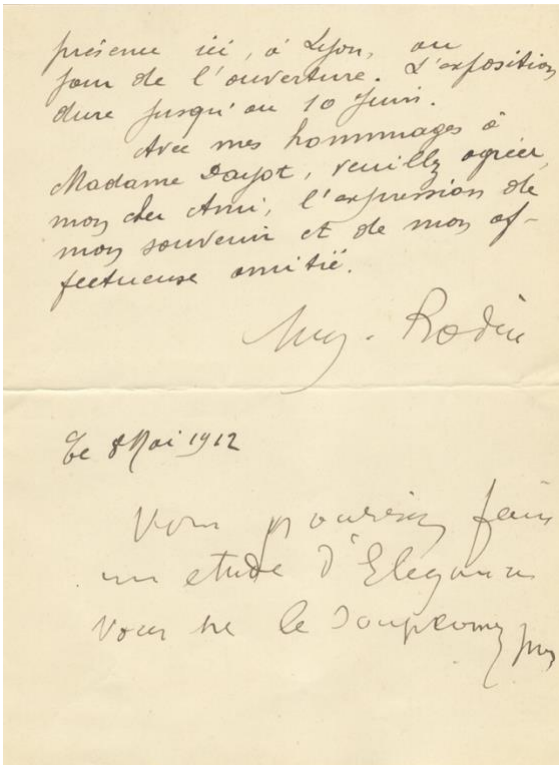 présence ici, à Lyon, au
jour de l'ouverture. L'exposition
dure jusqu'au 10 Juin.
Avec mes hommmages à
Madame Dayot, veuillez agréer,
mon cher Ami, l'expression de
mon souvenir et de mon af-
fectueuse amitié.
Aug. Rodin
Le 8 Mai 1912
Vous pouriez faire
un etude d'Elegance
Vous ne le soupconnez pas